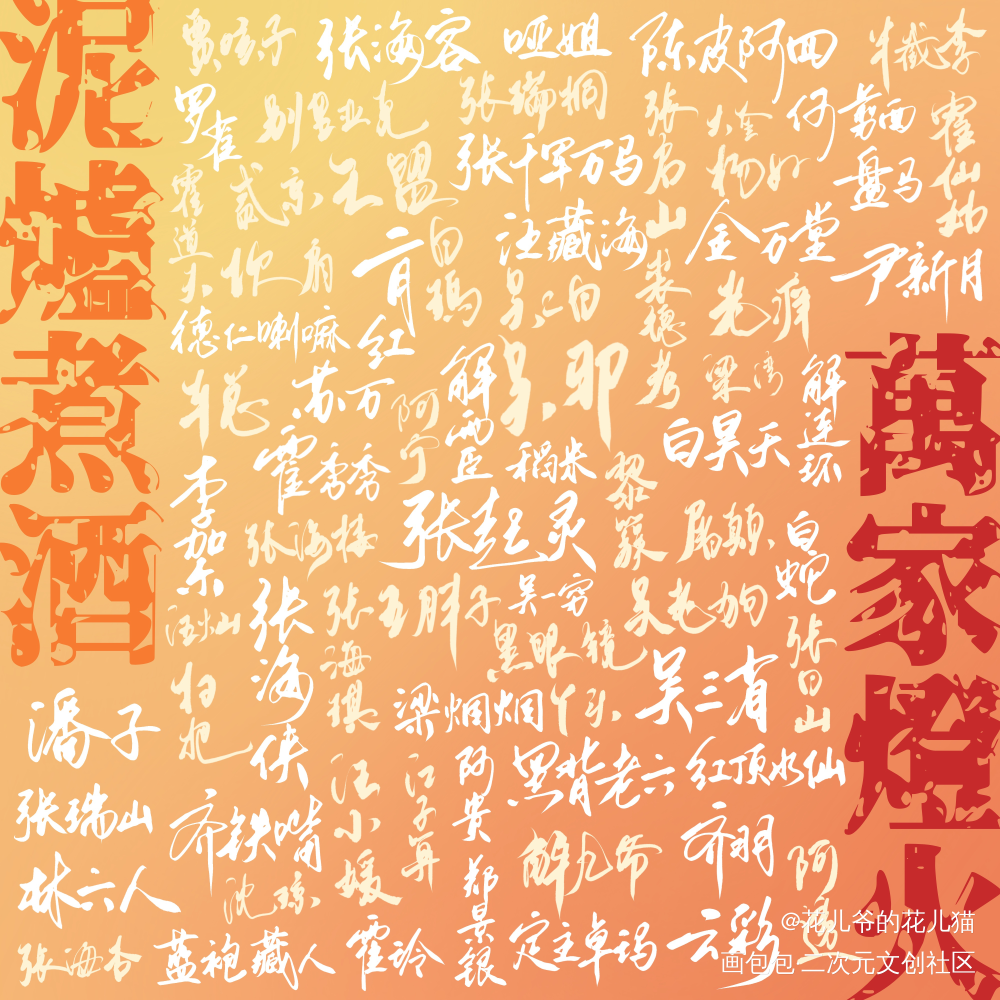 泥爐煮酒
賈咳子
张海客
哑姐
陈皮阿四
半截李
罗雀
别里亚克
张瑞桐
张启山
大奎
何剪西
霍仙姑
霍道夫
贰京
王盟
张千军万马
杨好
盘马
二月红
白玛
汪藏海
金万堂
尹新月
扒肩
吴二白
裘德考
老痒
德仁喇嘛
羊惢
苏万
阿宁
解雨臣
吴邪
梁湾
解连环
霍秀秀
稻米
黎簇
白昊天
萬家燈火
李加乐
张海楼
张起灵
屠颠
白蛇
汪灿
张海侠
张海琪
五胖子
吴一穷
吴老狗
张日山
扫把
黑眼镜
梁烟烟
丫头
吴三省
潘子
汪小媛
江子算
阿贵
黑背老六
红顶水仙
张瑞山
齐铁嘴
郑景银
解九爷
齐羽
阿透
林六人
沈琼
张海杏
蓝袍藏人
霍玲
定主卓玛
云彩
@花儿爷的花儿猫
画包包 二次元文创社区